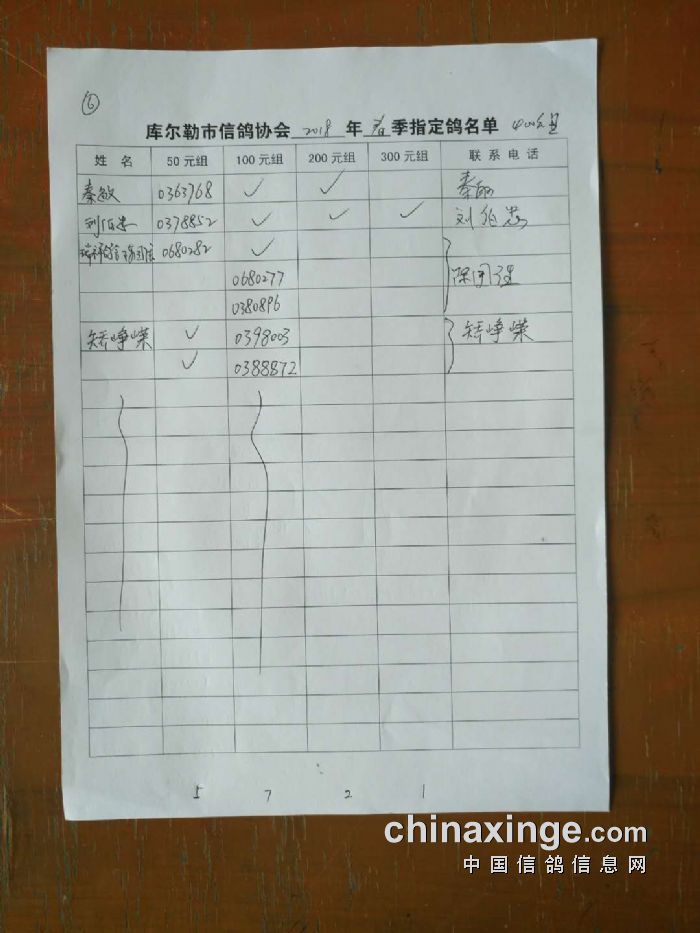 ⑥
库尔勒市信鸽协会 2018 年 春 季指定鸽名单
姓 名 50元组 100元组 200元组 300元组 联系电话
秦敏 0363768 ✓ ✓
0378852 ✓ ✓ ✓
0680282 ✓
0680277
0380896
峥嵘 ✓ 0398003 峥嵘
✓ 0388872
5 7 2 1
chinaxinge.com
中国信鸽信息网